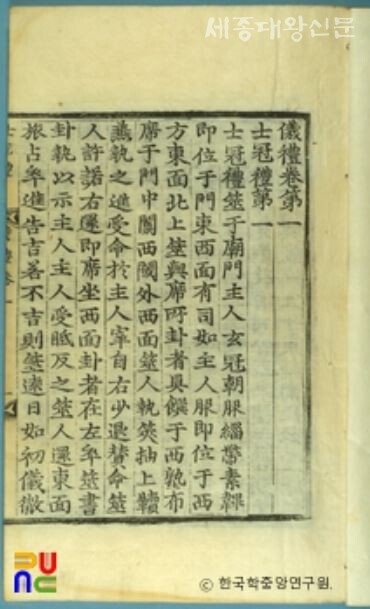 세종대왕신문
儀禮卷第一
士冠禮第一
士冠禮筮于廟門主人玄冠朝服緇帶素韠
即位于門東西面有司如主人服即位于西
方東面北上筮與席所卦者具饌于西塾布
席于門中闑西閾外西面筮人執筴抽上韇
兼執之進受命於主人宰自右少退贊命筮
人許諾右還即席坐西面卦者在左卒筮書
卦執以示主人主人受眡反之筮人還東面
旅占卒進告吉若不吉則筮遠日如初儀徹
© 한국학중앙연구원.